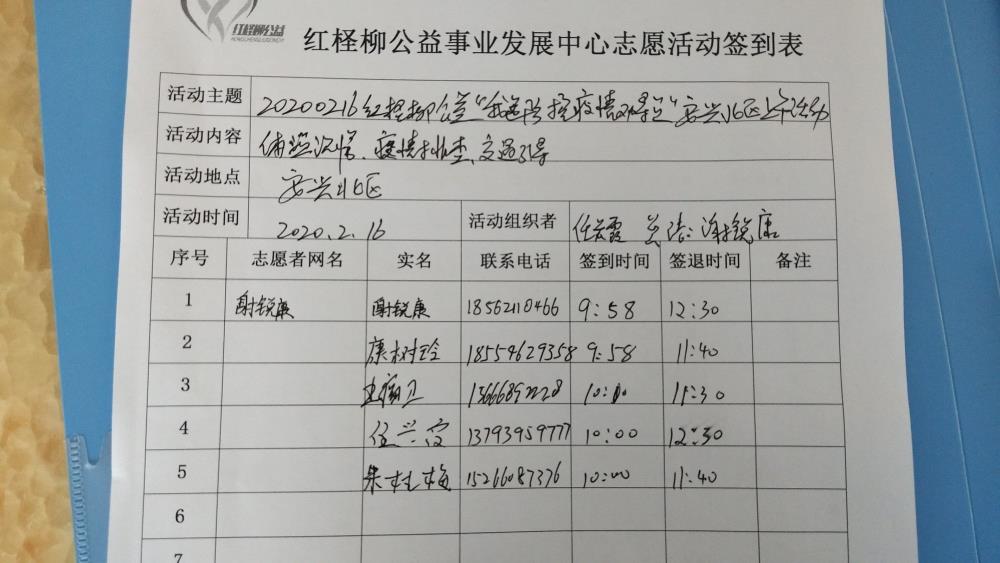 红柽柳公益
HONGCHENGLIUGONGYI
红柽柳公益事业发展中心志愿活动签到表
活动主题 20200216红柽柳公益“我送 疫情 ”安兴北区上午活动
活动内容 疫情排查、交通引导
活动地点 安兴北区
活动时间 2020.2.16 活动组织者 任云霞 谢锐康
序号 志愿者网名 实名 联系电话 签到时间 签退时间 备注
1 谢锐康 谢锐康 18562110466 9:58 12:30
2 康树玲 18554629358 9:58 11:40
3 10:00 11:30
4 任兴霞 13793959777 10:00 12:30
5 朱桂梅 15266087376 10:00 11:40
6
7